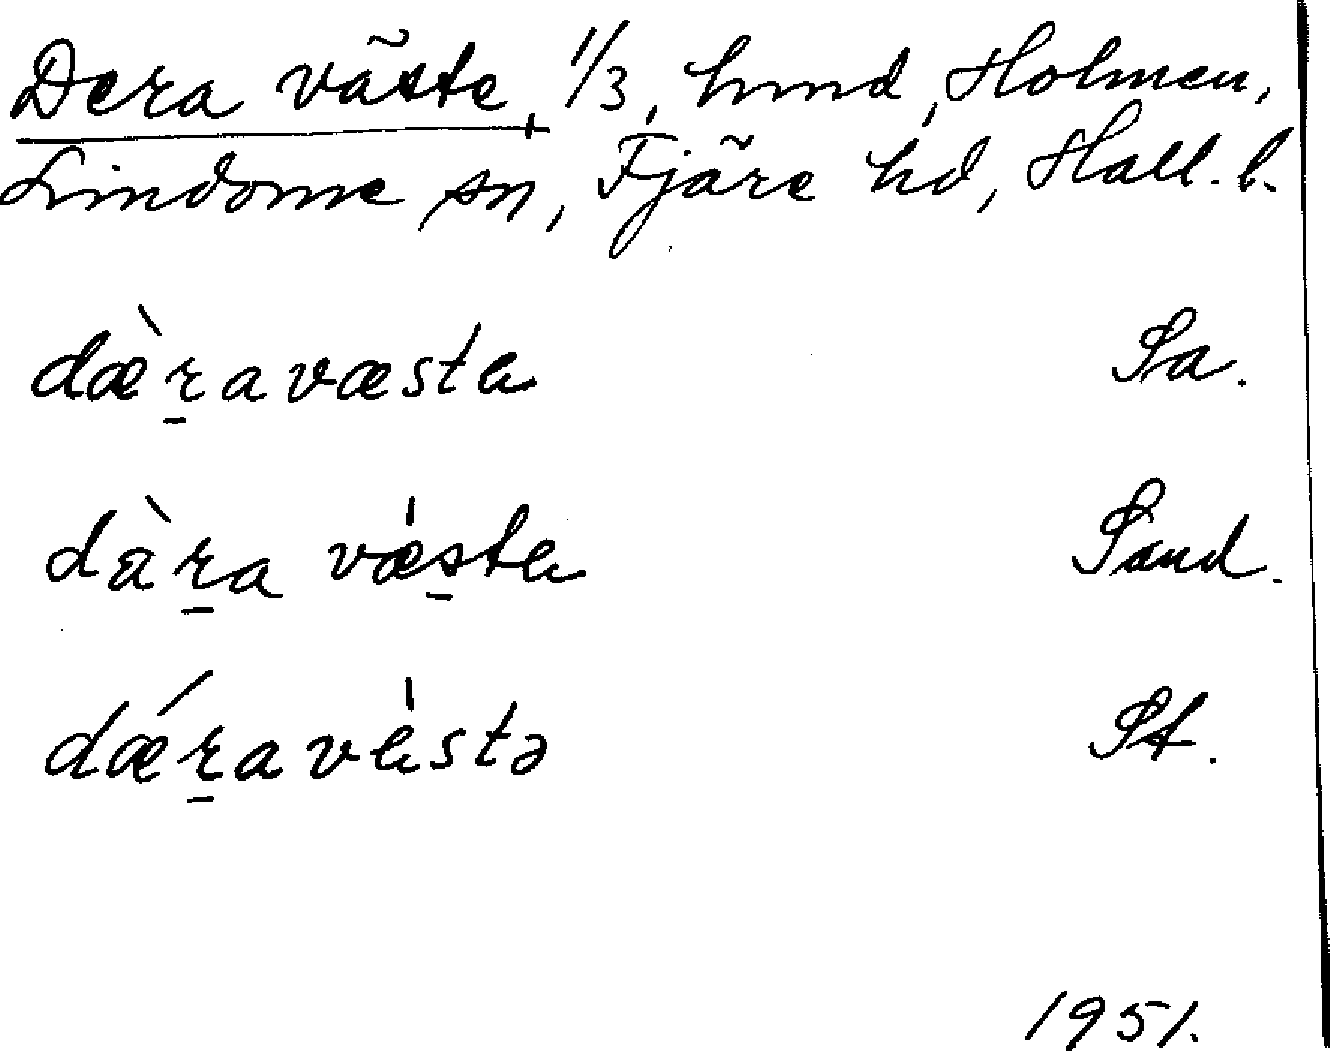 Dera väste, 1/3, hmd, Holmen,
Lindome sn, Fjäre hd, Hall. l.
dæ̀r̠avæste Sa.
dàr̠a væ̍s̠te Sand.
dǽr̠ave̍stə St.
1951.